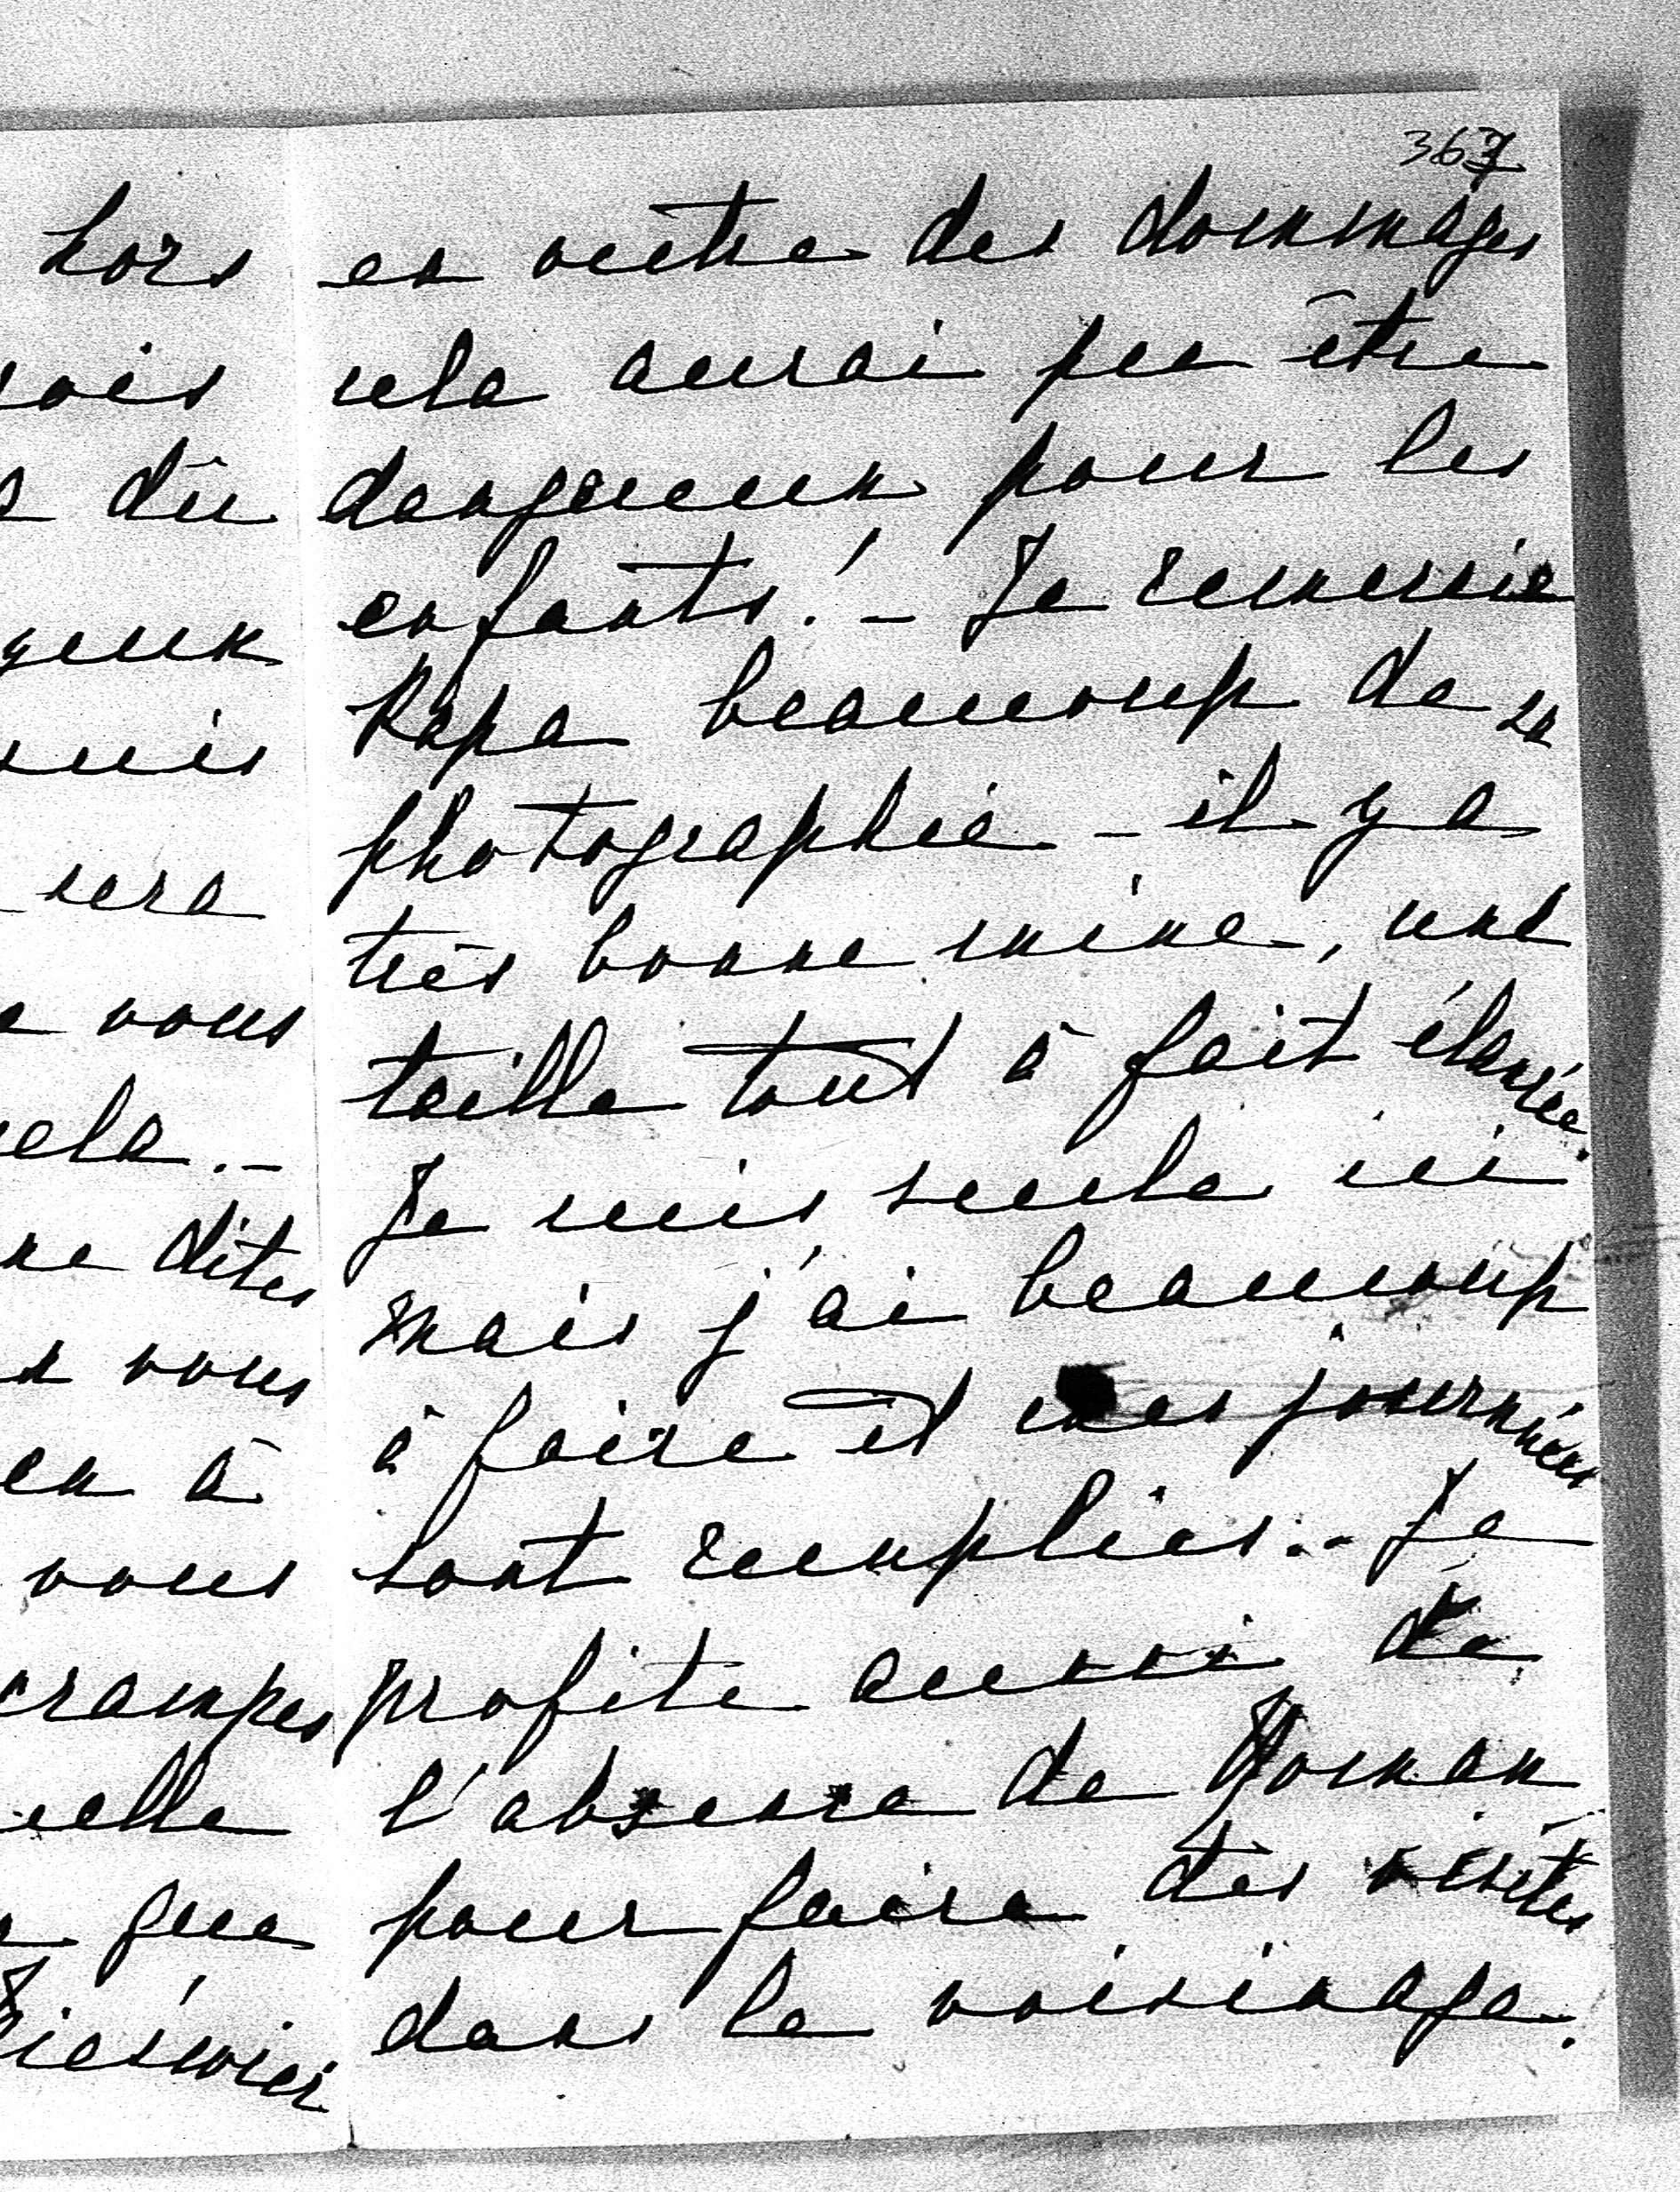 367
hors
vois
dû
yeux
suis
sera
vous
cela. -
ne dites
vous
en à
vous
crampes
celle
que
en outre des dommages
cela aurai pu être
dangereux pour les
enfants! - Je remercie
Papa beaucoup de sa
photographie - il y a
très bonne mine, une
taille tout à fait élancée.
Je suis seule ici
mais j'ai beaucoup
à faire et mes journées
sont remplies. - Je
profite aussi de
l'absence de Roman
pour faire des visites
dans le voisinage.